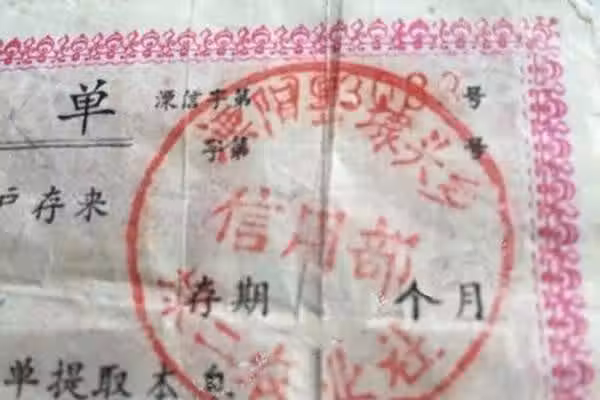 单 溧信字第 号
字第 号
户存来
溧阳县 埭头
信用部
存期 个月
单提取本息